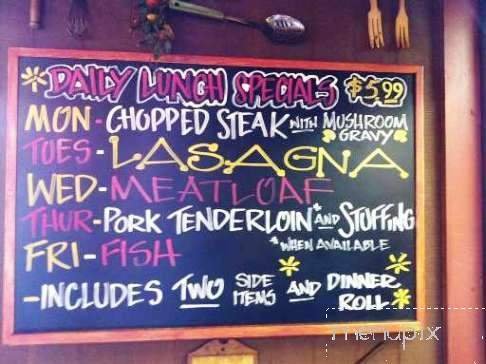 DAILY LUNCH SPECIALS $5.99
MON-CHOPPED STEAK WITH MUSHROOM
GRAVY
TUES-LASAGNA
WED-MEATLOAF
THUR-PORK TENDERLOIN* AND STUFFING
*WHEN AVAILABLE
FRI-FISH
-INCLUDES TWO SIDE ITEMS AND DINNER ROLL
menupix